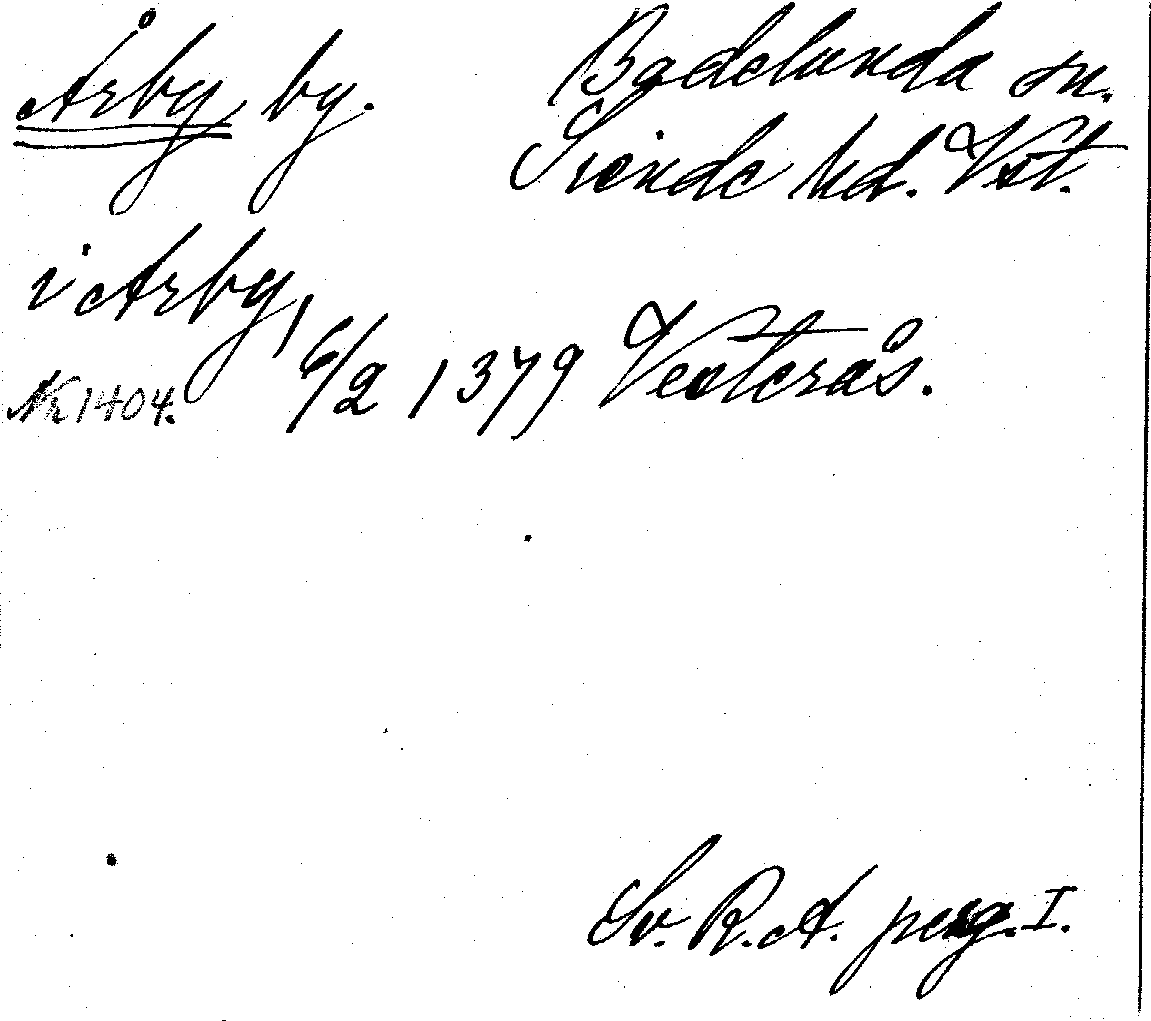 Årby by. Badelunda sn.
Siende hd. Vst.
i Arby, 6/2 1379 Vesterås.
Nr 1404.
Sv. R.A. perg. I.